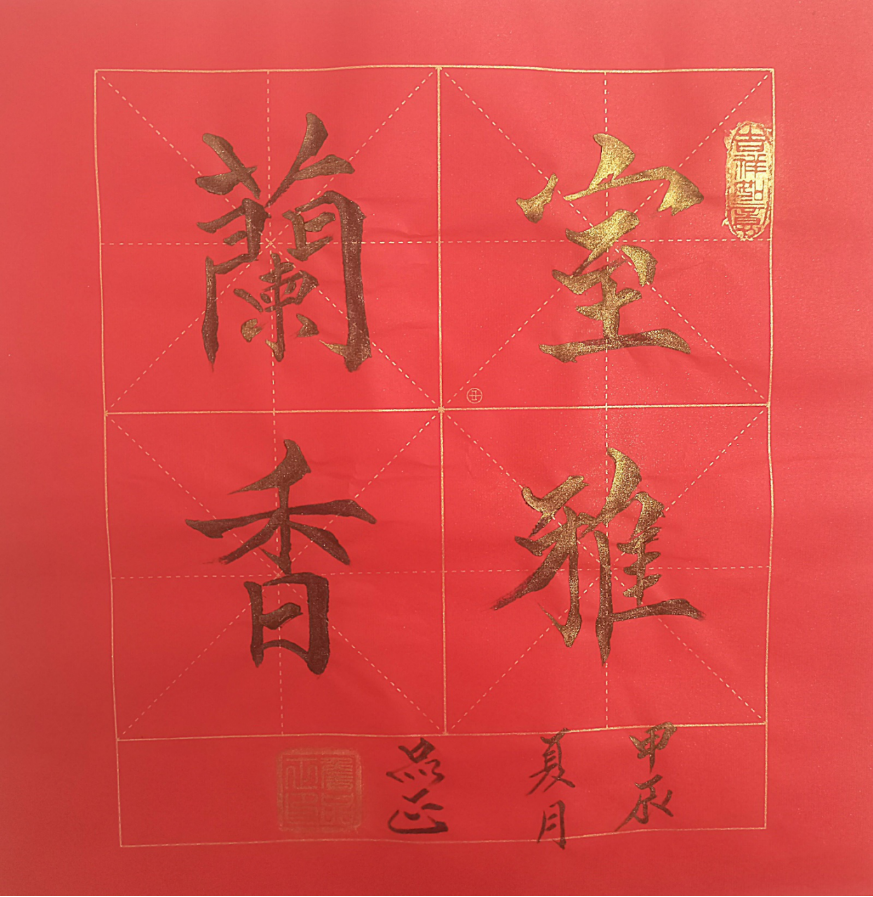 吉祥如意
室雅
蘭香
甲辰
夏月
品正